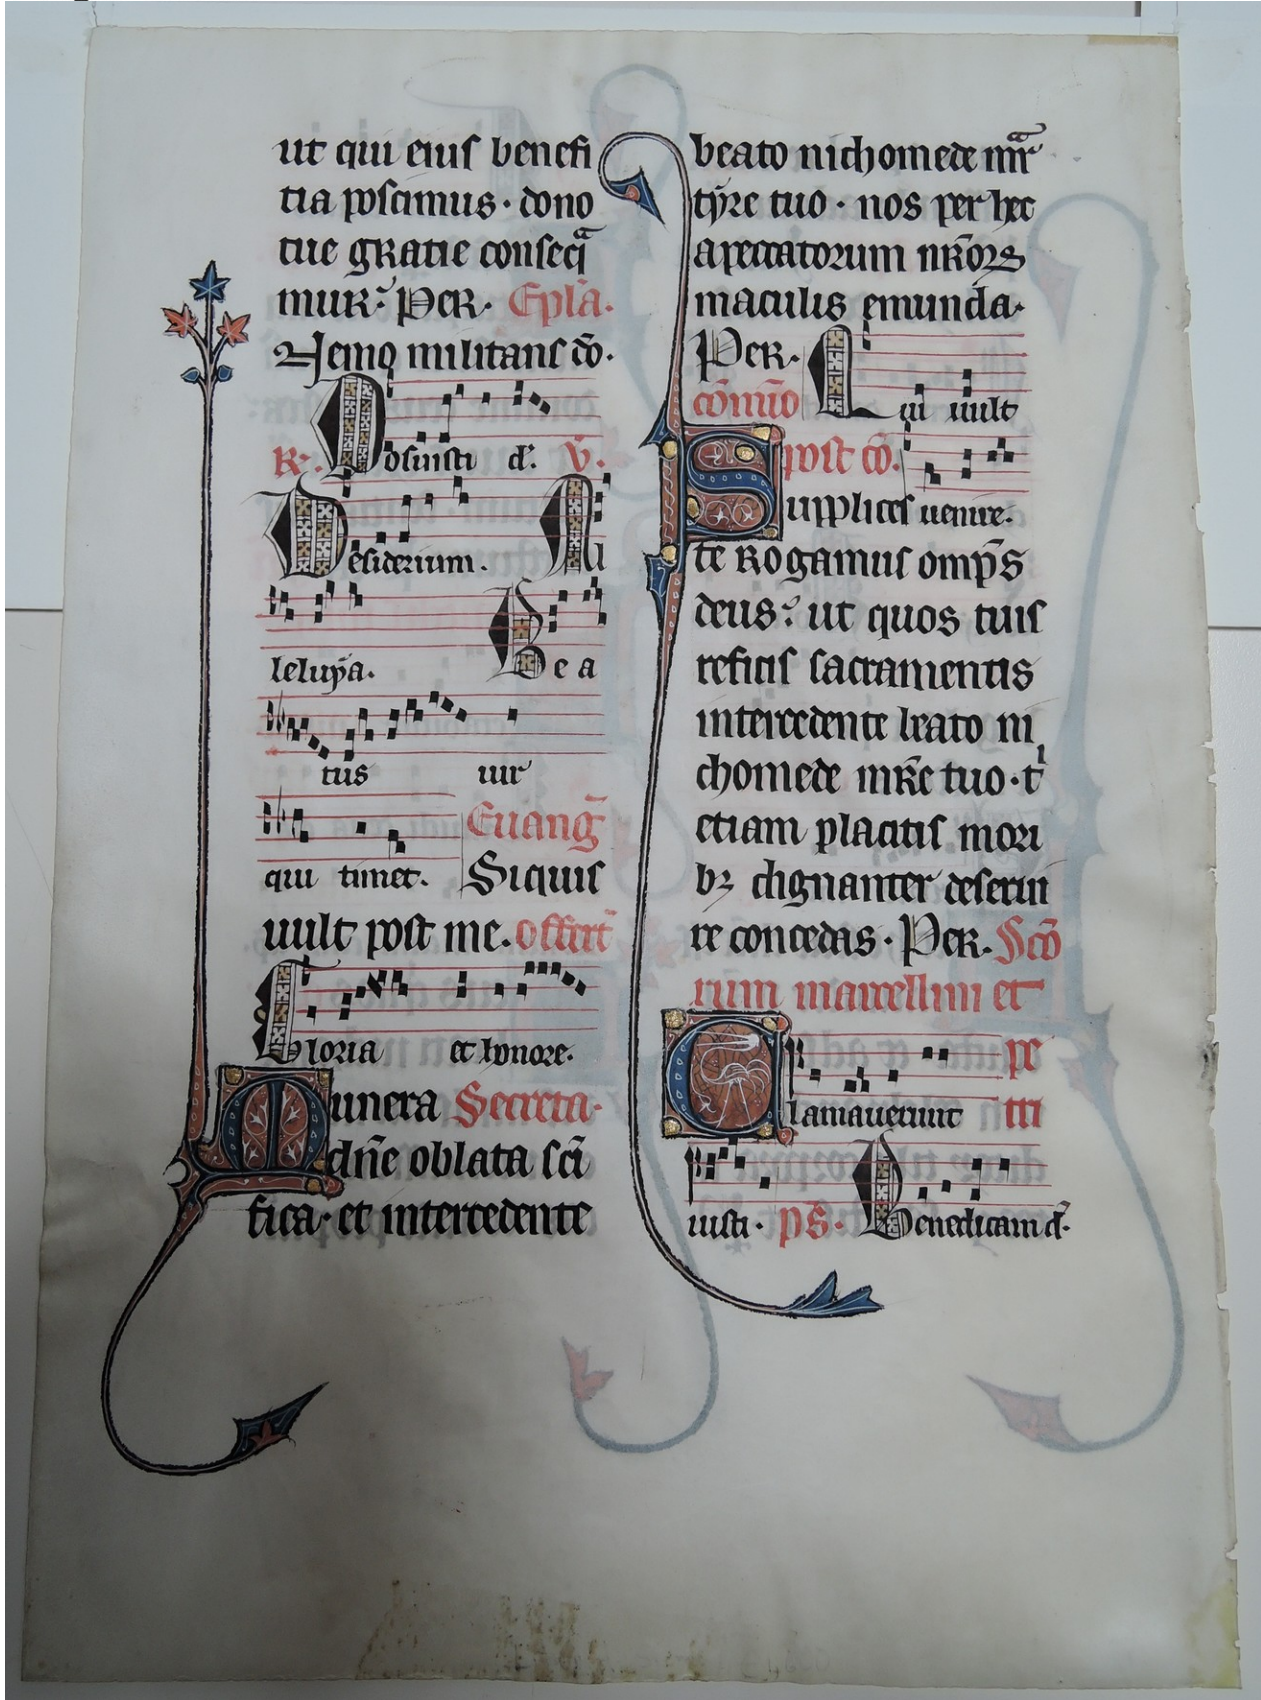 ut qui eius benefi
tia poscimus · dono
tue gratie conseqͣ
mur· Per· Epl̄a·
Nemo militans dō·
R̄. Posuisti d̄e. V̄.
Desiderium. All
leluya. Bea
tus uir
qui timet. Euang̅
Siquis
uult post me. offert̄
Gloria et honore.
Munera Secreta·
dn̄e oblata sc̄i
fica· et intercedente
beato nichomede mͣr
tyre tuo · nos per hec
a peccatorum nr̄orꝝ
maculis emunda·
Per· Qui uult
cōmūo
post cō. uenire.
Supplices
te Rogamus omp̄s
deus· ut quos tuis
reficis sacramentis
intercedente beato ni
chomede mr̄e tuo · tͥ
etiam placitis mori
bꝫ dignanter deserui
re concedas · Per. Scō
rum marcellini et
pe
Clamauerunt tri
iusti · p̄s· Benedicam d̄.